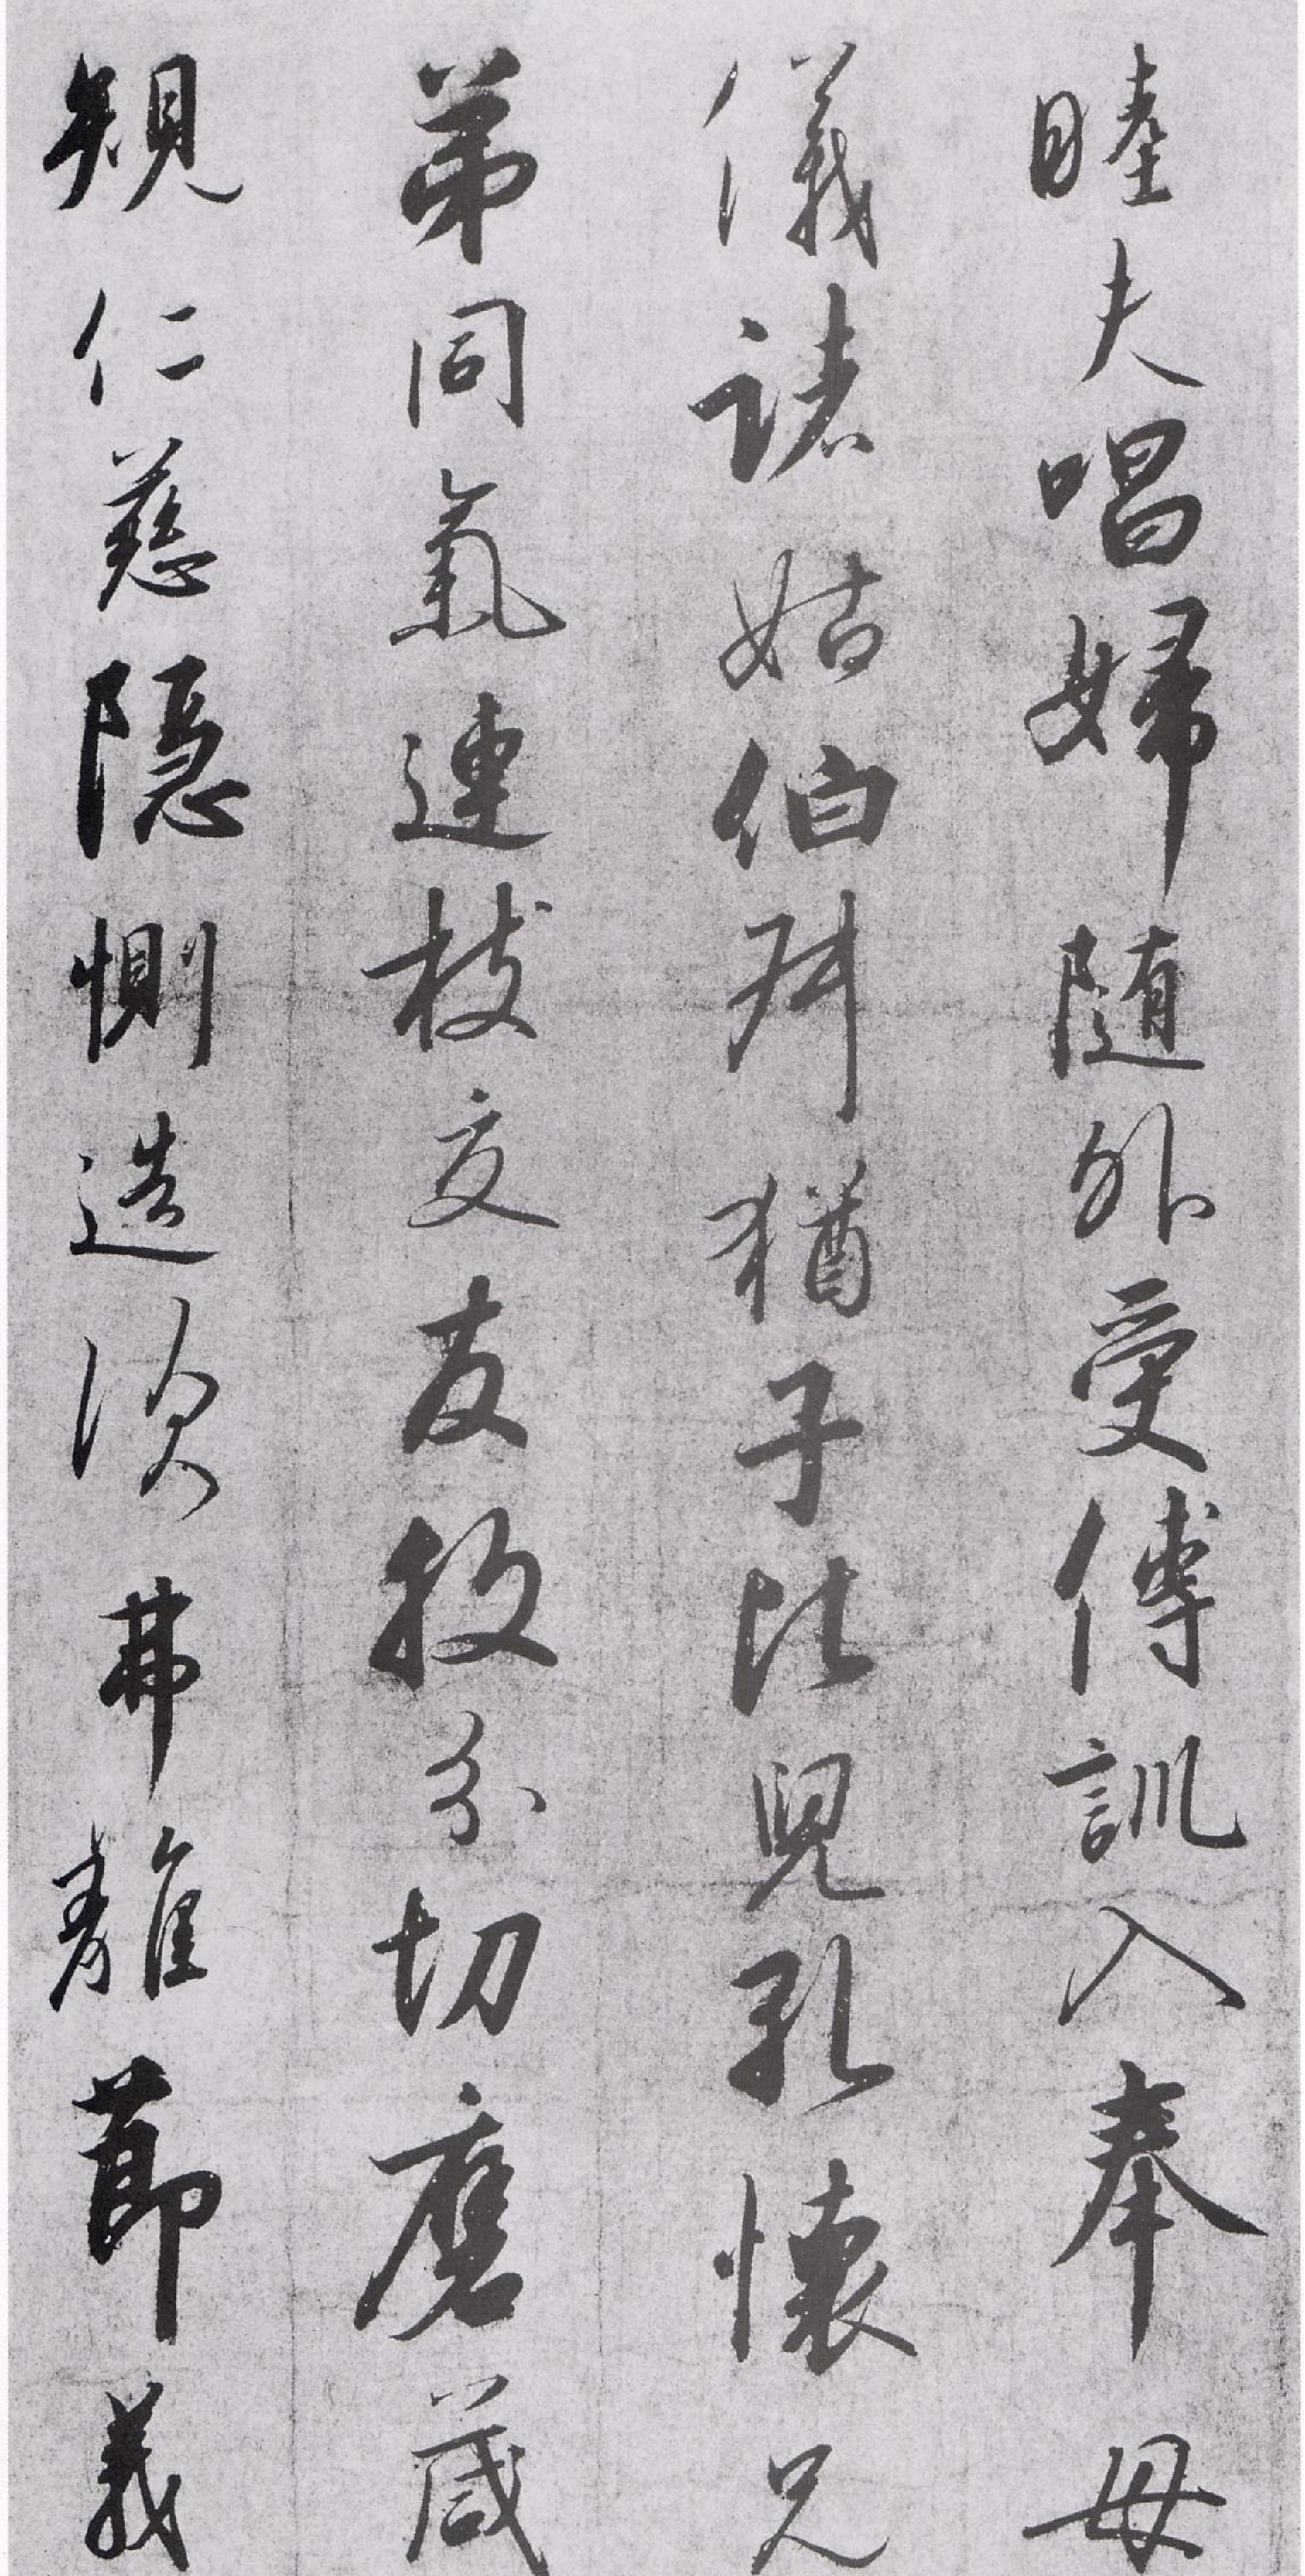 睦夫唱婦随外受傅訓入奉母
儀諸姑伯叔猶子比兒孔懷兄
弟同氣連枝交友投分切磨箴
規仁慈隱惻造次弗離節義